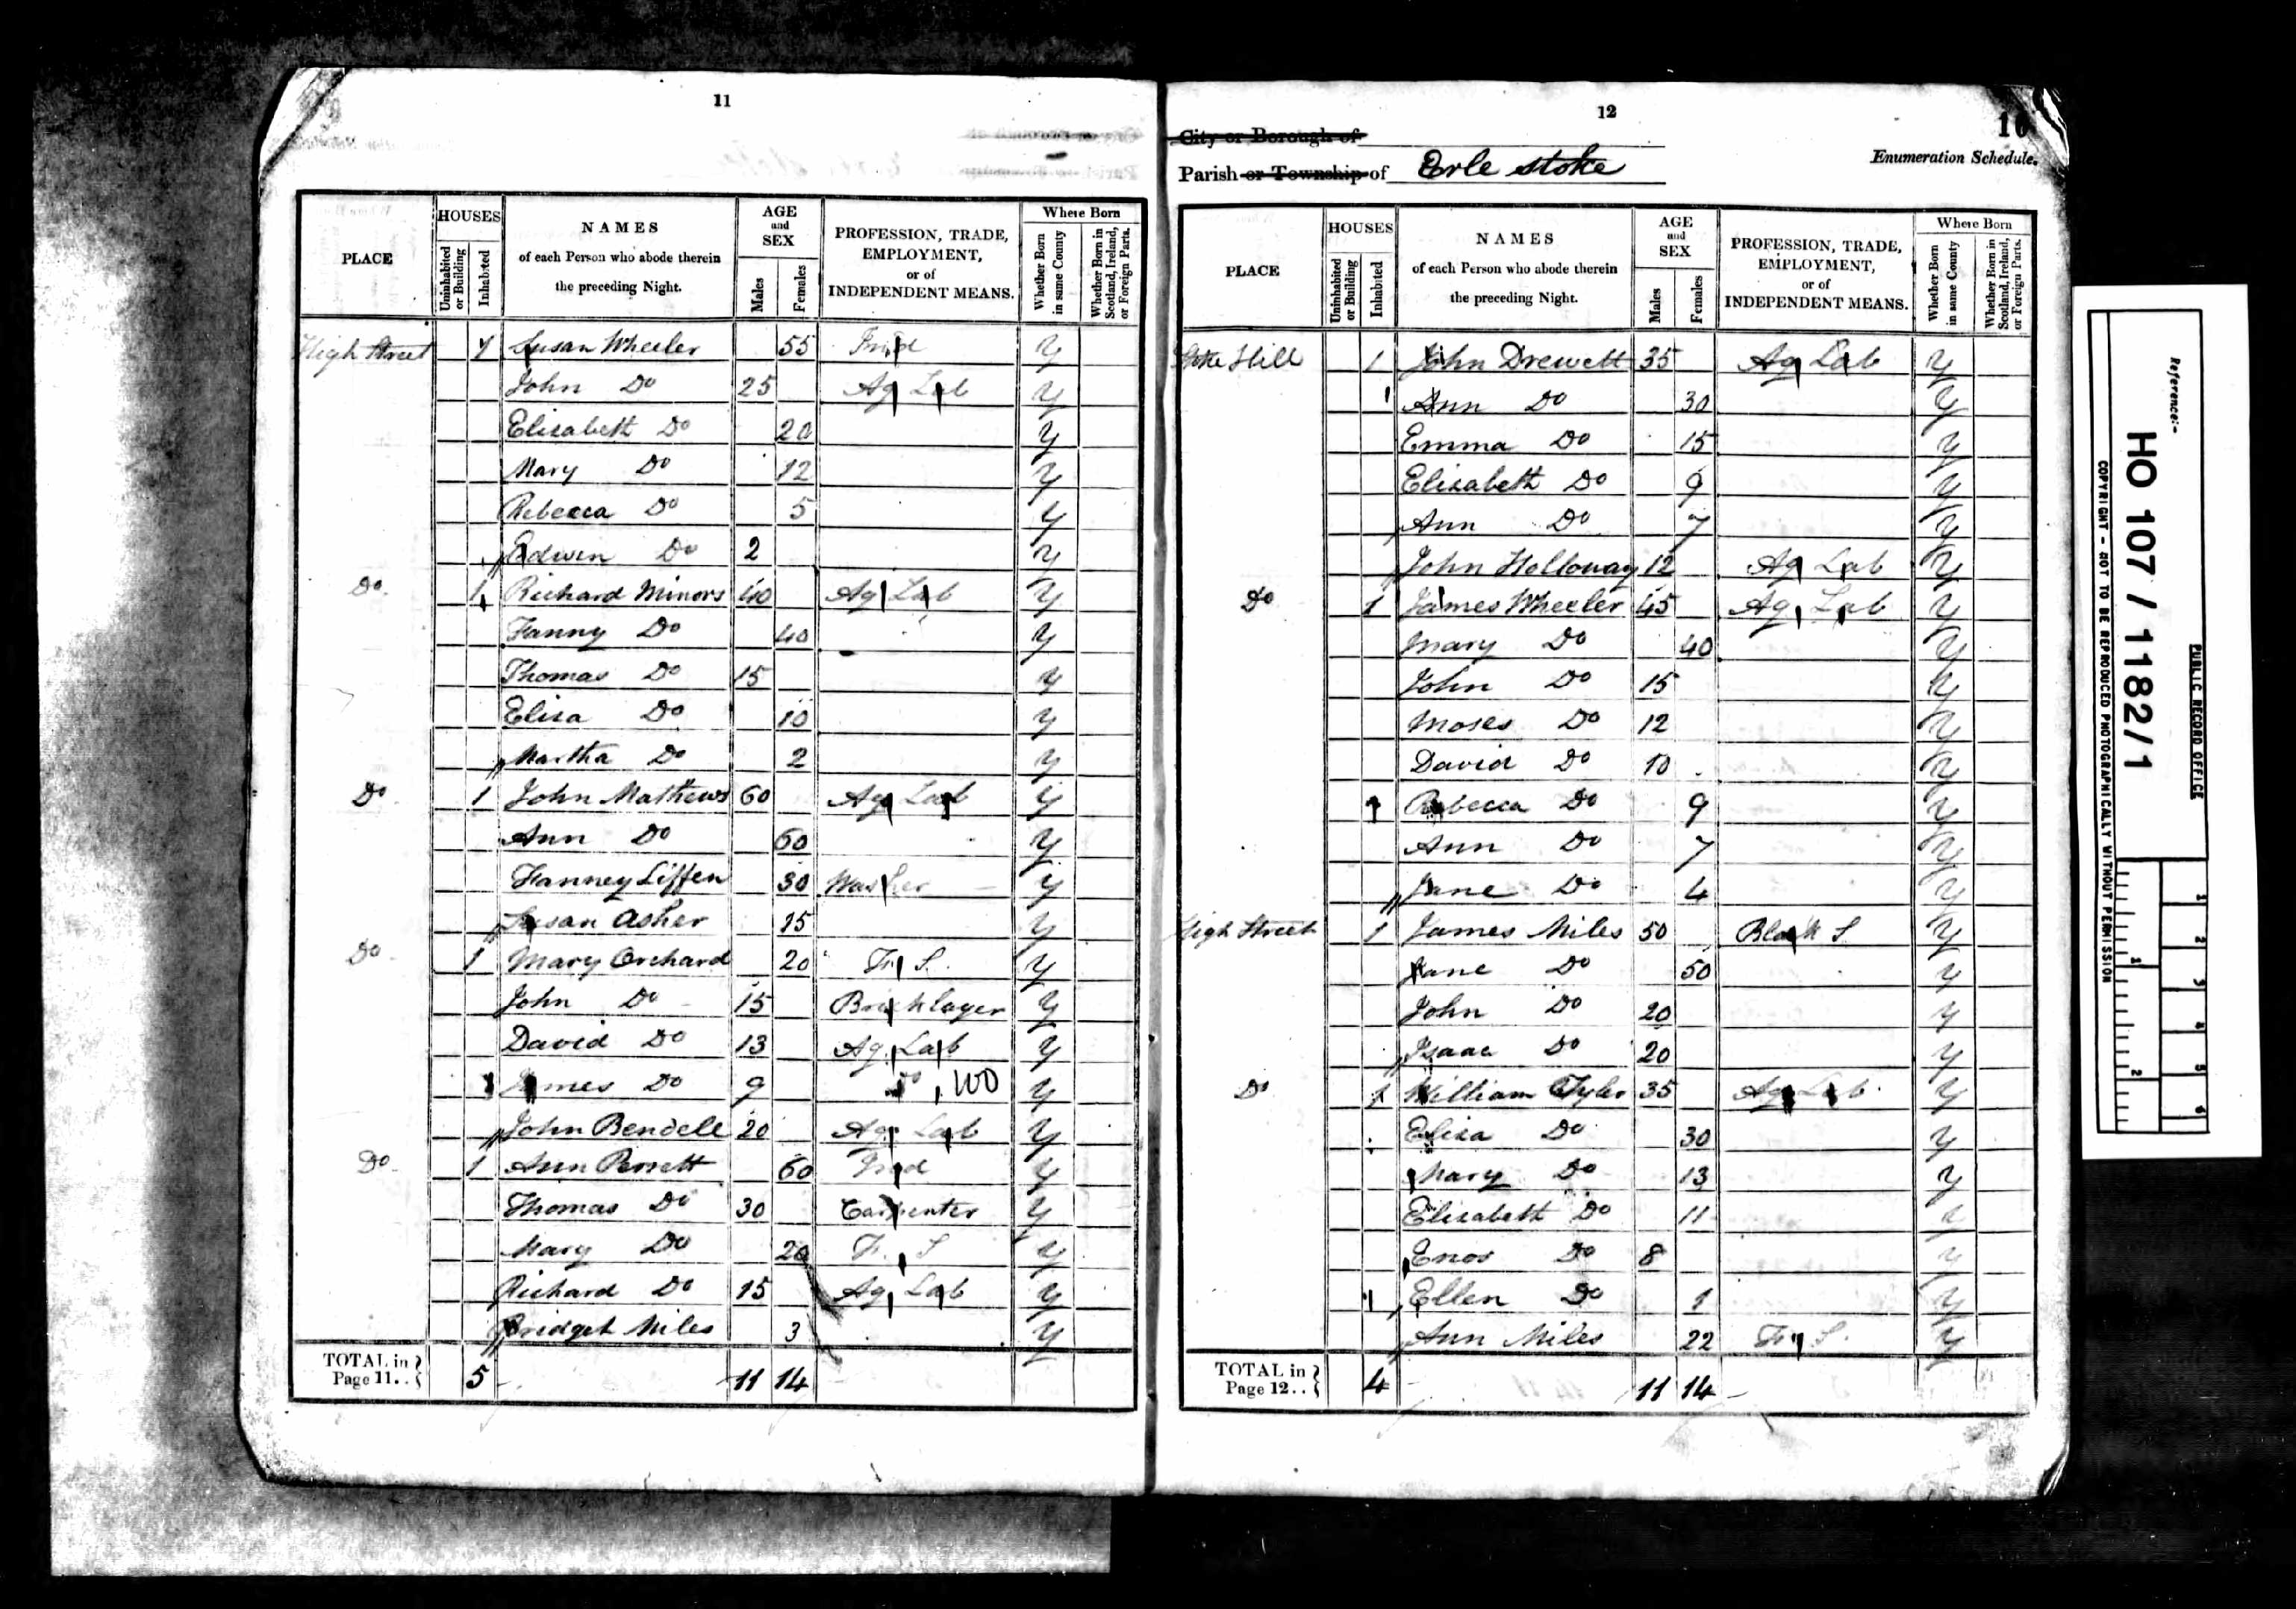 11
PLACE
HOUSES
Uninhabited or Building
Inhabited
NAMES
of each Person who abode therein
the preceding Night.
AGE
and
SEX
Males
Females
PROFESSION, TRADE,
EMPLOYMENT,
or of
INDEPENDENT MEANS.
Where Born
Whether Born in same County
Whether Born in Scotland, Ireland, or Foreign Parts.
High Street 1 Susan Wheeler 55 Ind Y
John Do 25 Ag Lab Y
Elisabeth Do 20 Y
Mary Do 12 Y
Rebecca Do 5 Y
Edwin Do 2 Y
Do 1 Richard Minors 40 Ag Lab Y
Fanny Do 40 Y
Thomas Do 15 Y
Elisa Do 10 Y
Martha Do 2 Y
Do 1 John Mathews 60 Ag Lab Y
Ann Do 60 Y
Fanney Liffen 30 Washer Y
Susan Asher 15 Y
Do 1 Mary Orchard 20 F. S. Y
John Do 15 Bricklayer Y
David Do 13 Ag Lab Y
James Do 9 Do 100 Y
John Bendell 20 Ag Lab Y
Do 1 Ann Perrett 60 Ind Y
Thomas Do 30 Carpenter Y
Mary Do 20 F. S Y
Richard Do 15 Ag Lab Y
Bridget Miles 3 Y
TOTAL in Page 11.. 5 11 14
12
10
City or Borough of
Parish or Township of Erle stoke
Enumeration Schedule.
PLACE
HOUSES
Uninhabited or Building
Inhabited
NAMES
of each Person who abode therein
the preceding Night.
AGE
and
SEX
Males
Females
PROFESSION, TRADE,
EMPLOYMENT,
or of
INDEPENDENT MEANS.
Where Born
Whether Born in same County
Whether Born in Scotland, Ireland, or Foreign Parts.
Stoke Hill 1 John Drewett 35 Ag Lab Y
Ann Do 30 Y
Emma Do 15 Y
Elisabeth Do 9 Y
Ann Do 7 Y
John Holloway 12 Ag Lab Y
Do 1 James Wheeler 45 Ag Lab Y
Mary Do 40 Y
John Do 15 Y
Moses Do 12 Y
David Do 10 Y
Rebecca Do 9 Y
Ann Do 7 Y
Jane Do 4 Y
High Street 1 James Miles 50 Black S Y
Jane Do 50 Y
John Do 20 Y
Isaac Do 20 Y
Do 1 William Tyler 35 Ag Lab Y
Elisa Do 30 Y
Mary Do 13 Y
Elisabeth Do 11 Y
Enos Do 8 Y
Ellen Do 1 Y
Ann Miles 22 F. S. Y
TOTAL in Page 12.. 4 11 14
Reference:-
HO 107 / 1182/1
PUBLIC RECORD OFFICE
COPYRIGHT - NOT TO BE REPRODUCED PHOTOGRAPHICALLY WITHOUT PERMISSION
1
2
3
4
5
6
1
2